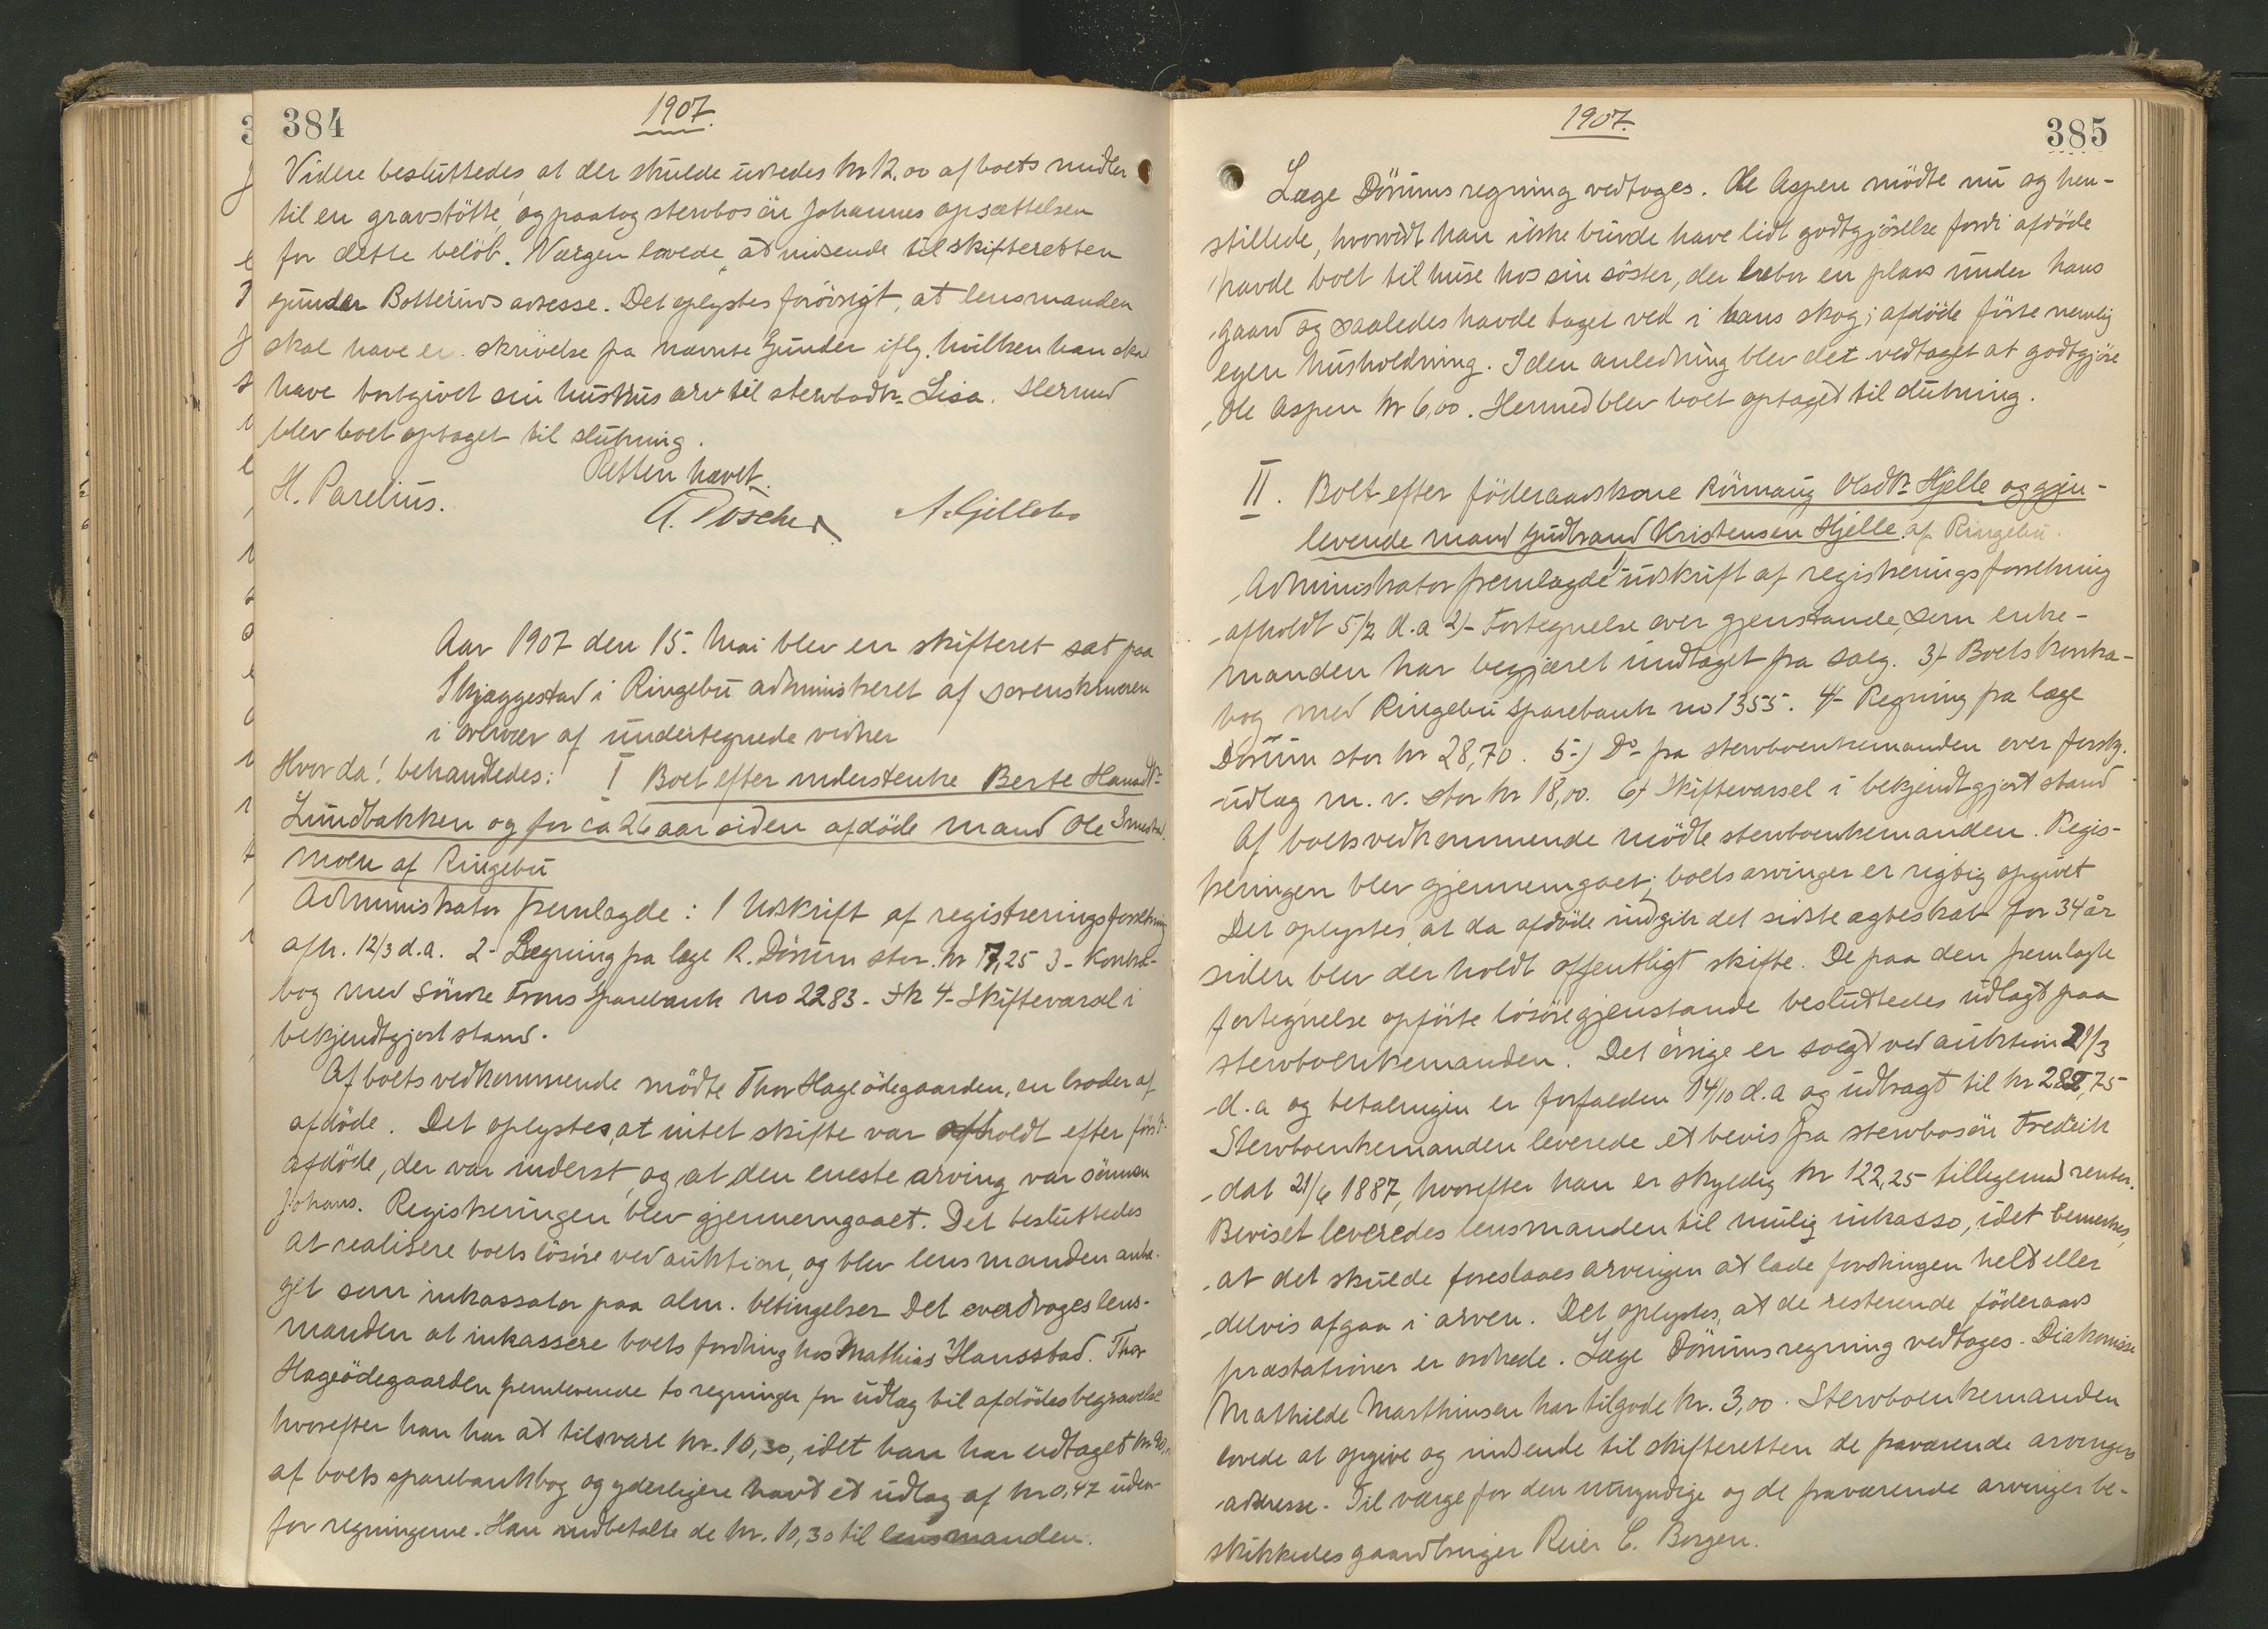 384
1907.
Videre besluttedes, at der skulde udredes kr 12.00 af boets midler
til en gravstøtte, og paatog stervbosøn Johannes opsættelsen
for dette beløb. Værgen lovede at indsende til skifteretten
Gunder Botteruds adresse. Det oplystes forøvrigt, at lensmanden
skal have en skrivelse fra nævnte Gunder iflg. hvilken han skal
have bortgivet sin hustrus arv til stervbodtr. Lisa. Hermed
blev boet optaget til slutning.
Retten hævet.
H. Parelius.
A. Gillebo
Aar 1907 den 15. Mai blev en skifteret sat paa
Skjæggestad i Ringebu administreret af sorenskriveren
i overvær af undertegnede vidner
Hvorda! behandledes: I Boet efter inderstenke Berte Hansdtr.
Lundbakken og for ca 26 aar siden afdøde mand Ole
moen af Ringebu
Administrator fremlagde: 1 Udskrift af registreringsforretning
afh. 12/3 d.a. 2- Regning fra læge R. Dørum stor kr 7,25 3- Kontra-
bog med Søndre Frons Sparebank no 2283. 4- Skiftevarsel i
bekjendtgjort stand.
Af boets vedkommende mødte Thor Hageødegaarden, en broder af
afdøde. Det oplystes, at intet skifte var afholdt efter først-
afdøde, der var inderst, og at den eneste arving var sønnen
Johans. Registreringen blev gjennemgaaet. Det besluttedes
at realisere boets løsøre ved auktion, og blev lensmanden anta-
get som inkassator paa alm. betingelser Det overdroges lens-
manden at inkassere boets fordring hos Mathias Hansstad. Thor
Hageødegaarden fremleverede to regninger for udlæg til afdødes begravelse
hvorefter han har at tilsvare kr. 10,30, idet han har udtaget kr
af boets sparebankbog og yderligere havt et udlæg af kr 0,47 uden-
for regningerne. Han indbetalte de kr. 10,30 til lensmanden.
385
1907.
Læge Dørums regning vedtoges. Ole Aspen mødte nu og hen-
stillede, hvorvidt han ikke burde have lidt godtgjørelse fordi afdøde
havde boet til huse hos sin søster, der bebor en plads under hans
gaard og saaledes havde taget ved i hans skog; afdøde førte nemlig
egen husholdning. I den anledning blev det vedtaget at godtgjøre
Ole Aspen kr 6,00. Hermed blev boet optaget til slutning.
II. Boet efter føderaadskone Rønnaug Olsdtr. Hjelle og gjen-
levende mand Gudbrand Kristensen Hjelle af Ringebu.
Administrator fremlagde 1/- udskrift af registreringsforretning
afholdt 5/2 d.a 2/- Fortegnelse over gjenstande, som enke-
manden har begjæret undtaget fra salg. 3/- Boets kontra-
bog med Ringebu sparebank no 1355. 4/- Regning fra læge
Dørum stor kr 28,70. 5-/ Do- fra stervboenkemanden over forskj.
udlæg m. v. stor kr 18,00. 6/ Skiftevarsel i bekjendtgjort stand
Af boets vedkommende mødte stervboenkemanden. Regis-
treringen blev gjennemgaaet; boets arvinger er rigtig opgivet
Det oplystes, at da afdøde indgik det sidste ægteskab for 34 år
siden blev der holdt offentligt skifte. De paa den fremlagte
fortegnelse opførte løsøregjenstande besluttedes udlagt paa
stervboenkemanden. Det øvrige er solgt ved auktion 21/3
d.a og betalingen er forfalden 14/10 d.a og udbragt til kr 282,75
Stervboenkemanden leverede et bevis fra stervbosøn Fredrik
dat 21/6 1887, hvorefter han er skyldig kr 122,25 tilligemed renter.
Beviset leveredes lensmanden til mulig inkasso, idet bemerkes,
at det skulde foreslaaes arvingen at lade fordringen helt eller
delvis afgaa i arven. Det oplystes, at de resterende føderaads
præstationer er ordnede. Læge Dørums regning vedtoges. Diakonisse
Mathilde Marthinsen har tilgode kr. 3,00. Stervboenkemanden
lovede at opgive og indsende til skifteretten de fraværende arvinges
adresse. Til værge for den umyndige og de fraværende arvinger be-
skikkedes gaardbruger Reier C. Borgen.